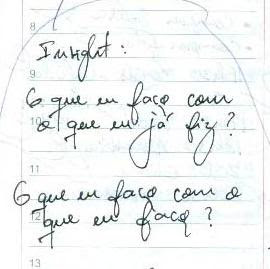 8
Insight:
9
O que eu faço com
10
o que eu já fiz?
11
O que eu faço com o
12
que eu faço?
13